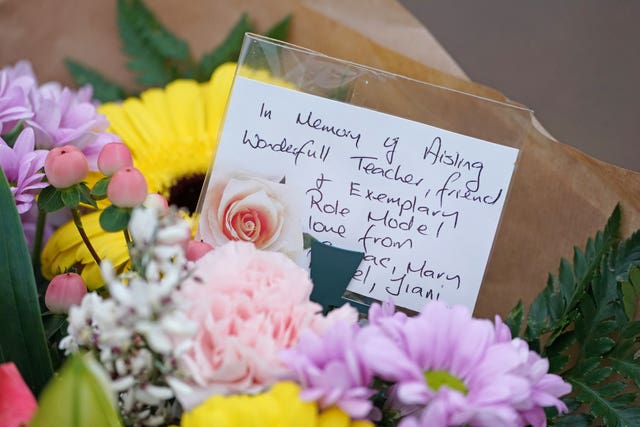 In Memory of Aisling
Wonderfull Teacher, friend
& Exemplary
Role Model
love from
Mary